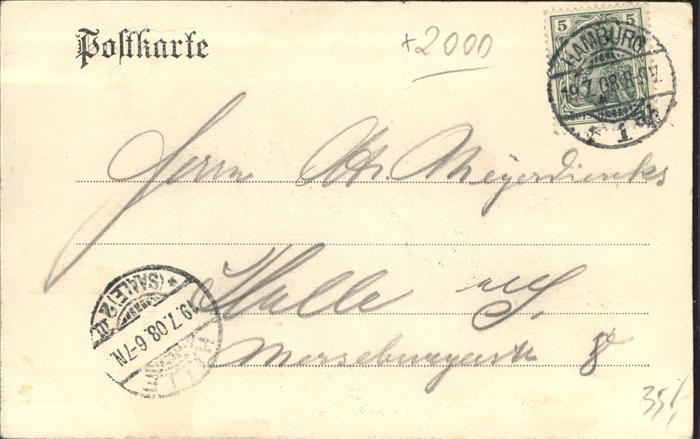 Postkarte
+2000
5 5
HAMBURG
19.7.08.8-9V.
* 1 *
Herrn Chr. Meyerdiercks
Halle a/S.
Merseburgerstr. 8
HALLE
19.7.08.6-7N.
* (SAALE) 2
35,